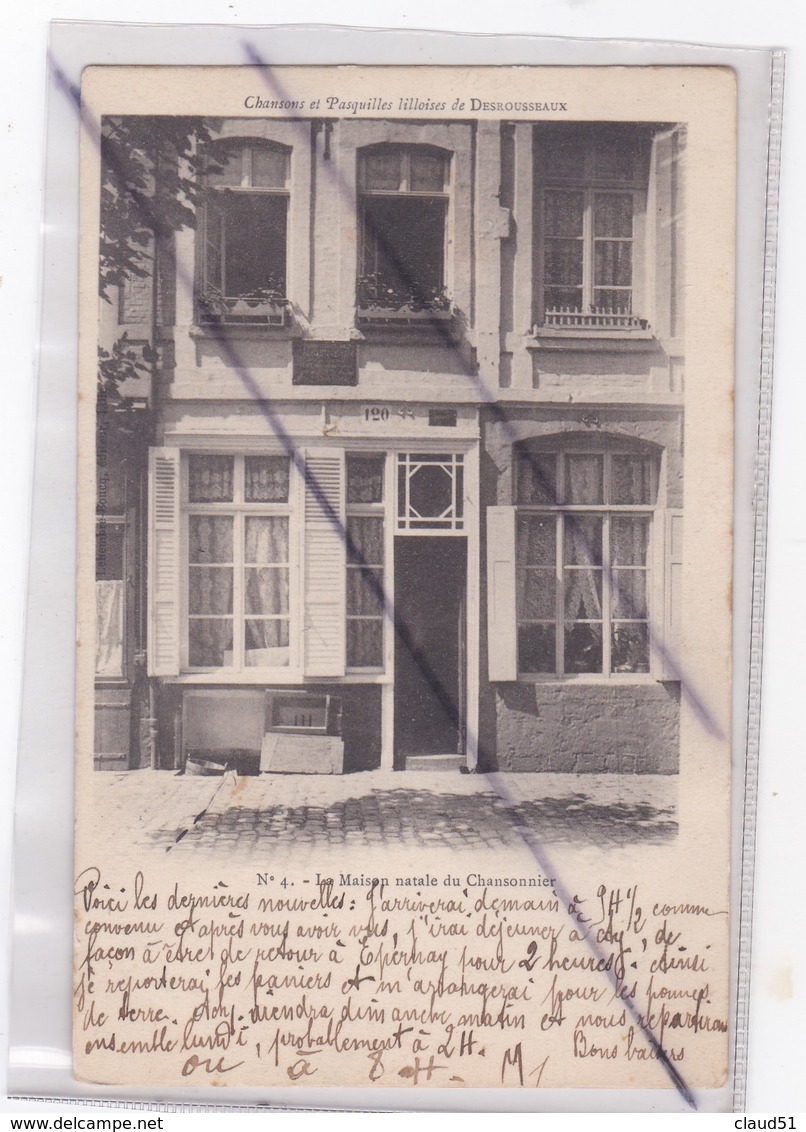 Chansons et Pasquilles lilloises de DESROUSSEAUX
120
N° 4. - La Maison natale du Chansonnier
Voici les dernières nouvelles : J'arriverai demain à 9H 1/2 comme
convenu et après vous avoir vus, j'irai déjeuner à de
façon à être de retour à Epernay pour 2 heures. ainsi
je reporterai les paniers et m'arrangerai pour les pommes
de terre. viendra dimanche matin et nous repartirons
ensemble lundi, probablement à 2H. Bons baisers
ou à 8 H. M
claud51